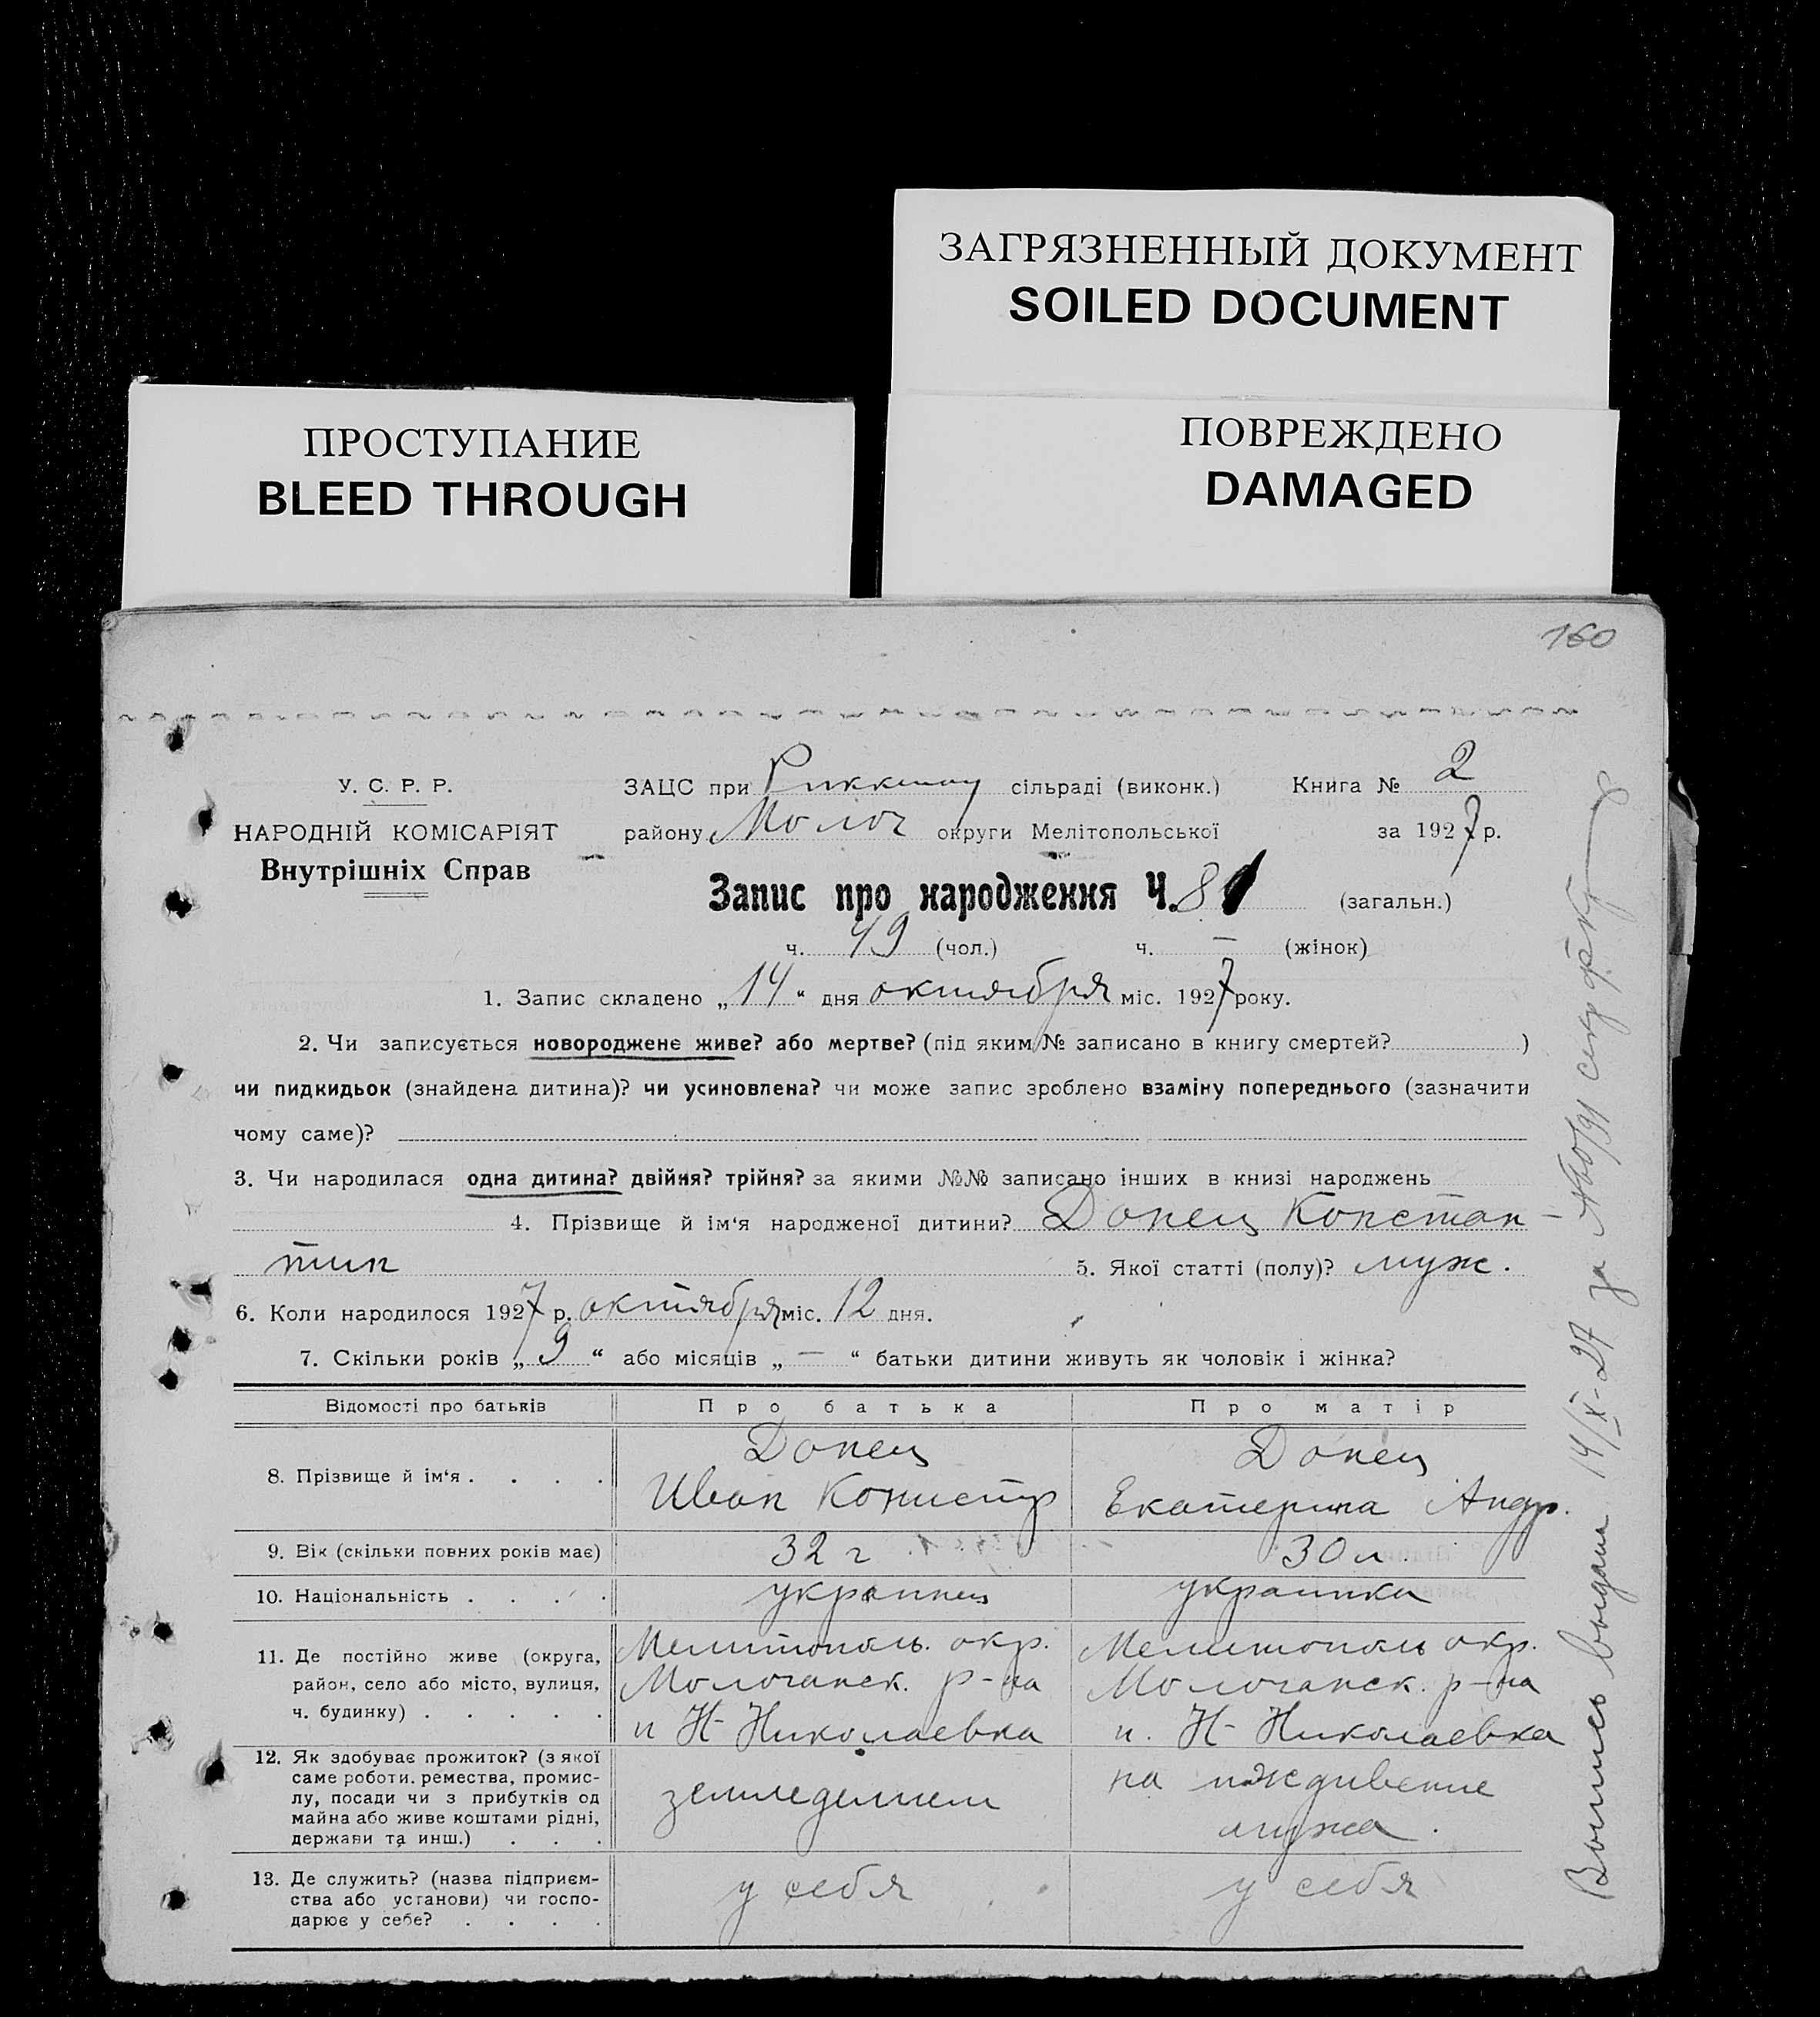 ЗАГРЯЗНЕННЫЙ ДОКУМЕНТ
SOILED DOCUMENT
ПРОСТУПАНИЕ
BLEED THROUGH
ПОВРЕЖДЕНО
DAMAGED
160
У. С. Р. Р.
НАРОДНІЙ КОМІСАРІЯТ
Внутрішніх Справ
ЗАЦС при сільраді (виконк.) Книга № 2
району Молоч округи Мелітопольської за 1927 р.
Запис про народження Ч. (загальн.)
ч. 49 (чол.) ч. — (жінок)
1. Запис складено „14“ дня октября міс. 1927 року.
2. Чи записується новороджене живе? або мертве? (під яким № записано в книгу смертей? )
чи пидкидьок (знайдена дитина)? чи усиновлена? чи може запис зроблено взаміну попереднього (зазначити
чому саме)?
3. Чи народилася одна дитина? двійня? трійня? за якими №№ записано інших в книзі народжень
4. Прізвище й ім‘я народженої дитини? Донец Констан-
тин 5. Якої статті (полу)? муж.
6. Коли народилося 1927 р. октября міс. 12 дня.
7. Скільки років „9“ або місяців „—“ батьки дитини живуть як чоловік і жінка?
Відомості про батьків Про батька Про матір
8. Прізвище й ім‘я . . . . Донец Донец
Иван Екатерина Андр.
9. Вік (скільки повних років має) 32 г 30 л.
10. Національність . . . . украинец украинка
11. Де постійно живе (округа, район, село або місто, вулиця, ч. будинку) . . . . .
Мелитополь. окр. Мелитополь окр.
Молочанск. р-на Молочанск. р-на
п Н-Николаевка п. Н-Николаевка
12. Як здобуває прожиток? (з якої саме роботи. ремества, промислу, посади чи з прибутків од майна або живе коштами рідні, держави та инш.) . . .
земледелием на иждивение
мужа.
13. Де служить? (назва підприємства або установи) чи господарює у себе? . . . .
у себя у себя
Выпись выдана 14/X-27 за №